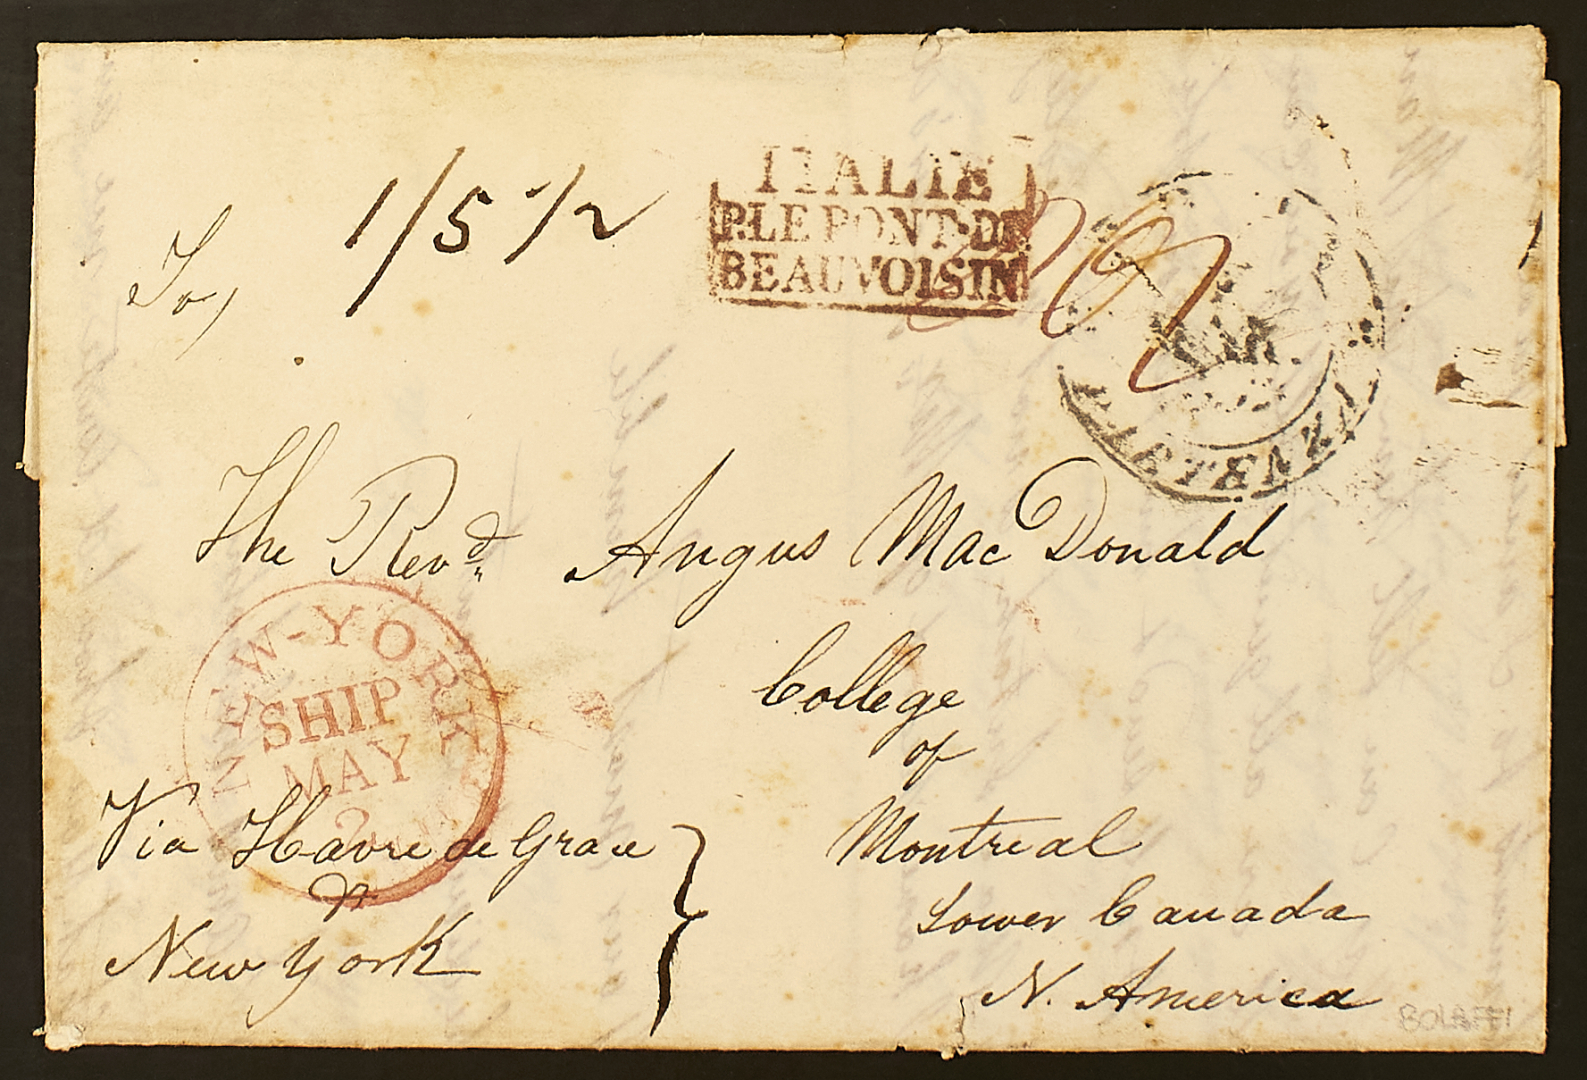 To, 1/5 1/2
ITALIE
P.LE PONT-DE
BEAUVOISIN
MAR
The Revd. Angus MacDonald
College
of
Montreal
Lower Canada
N. America
NEW-YORK
SHIP
MAY
2
Via Havre de Grace
&
New York
BOLAFFI